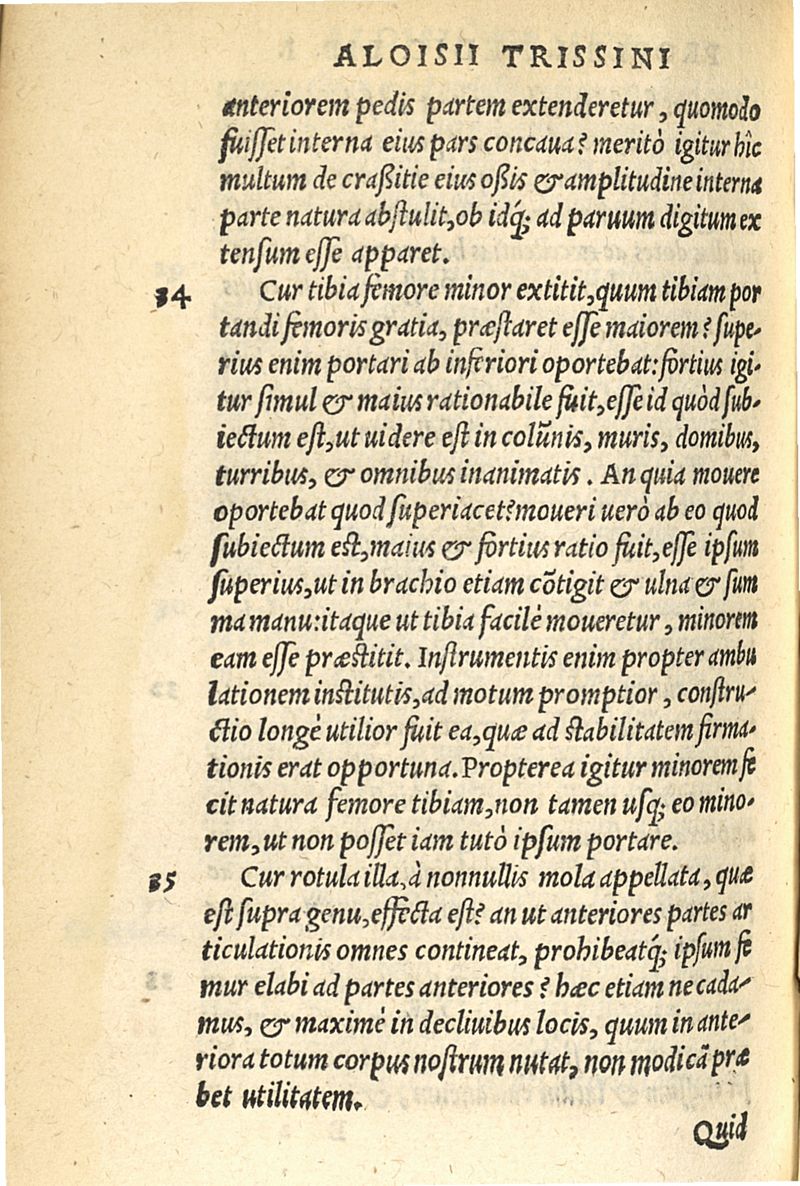 ALOISII TRISSINI
anteriorem pedis partem extenderetur, quomodo
fuisset interna eius pars concaua? meritò igitur hîc
multum de craßitie eius oßis & amplitudine interna
parte natura abstulit, ob idq́; ad paruum digitum ex
tensum esse apparet.
34 Cur tibia femore minor extitit, quum tibiam por
tandi femoris gratia, præstaret esse maiorem? supe-
rius enim portari ab inferiori oportebat: fortius igi-
tur simul & maius rationabile fuit, esse id quòd sub-
iectum est, ut uidere est in colūnis, muris, domibus,
turribus, & omnibus inanimatis. An quia mouere
oportebat quod superiacet? moueri uerò ab eo quod
subiectum est, maius & fortius ratio fuit, esse ipsum
superius, ut in brachio etiam cōtigit & ulna & sum
ma manu: itaque ut tibia facilè moueretur, minorem
eam esse præstitit. Instrumentis enim propter ambu
lationem institutis, ad motum promptior, constru-
ctio longè utilior fuit ea, quæ ad stabilitatem firma-
tionis erat opportuna. Propterea igitur minorem fe
cit natura femore tibiam, non tamen usq; eo mino-
rem, ut non posset iam tutò ipsum portare.
35 Cur rotula illa, à nonnullis mola appellata, quæ
est supra genu, effecta est? an ut anteriores partes ar
ticulationis omnes contineat, prohibeatq́; ipsum fe
mur elabi ad partes anteriores? hæc etiam ne cada-
mus, & maximè in decliuibus locis, quum in ante-
riora totum corpus nostrum nutat, non modicā præ
bet utilitatem.
Quid